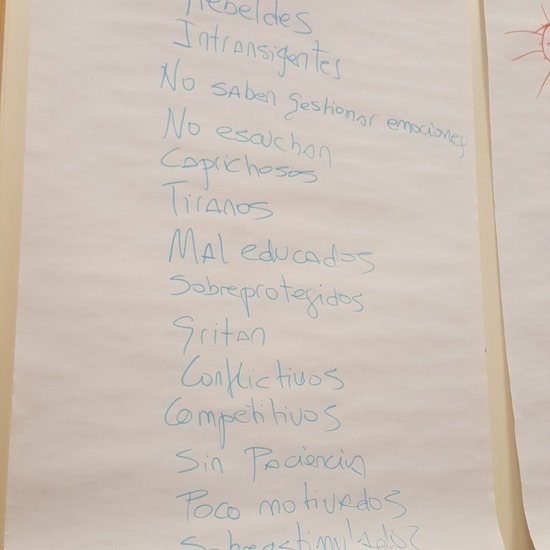 Rebeldes
Intransigentes
No saben gestionar emociones
No escuchan
Caprichosos
Tiranos
Mal educados
Sobreprotegidos
Gritan
Conflictivos
Competitivos
Sin Paciencia
Poco motivados
Sobreestimulados